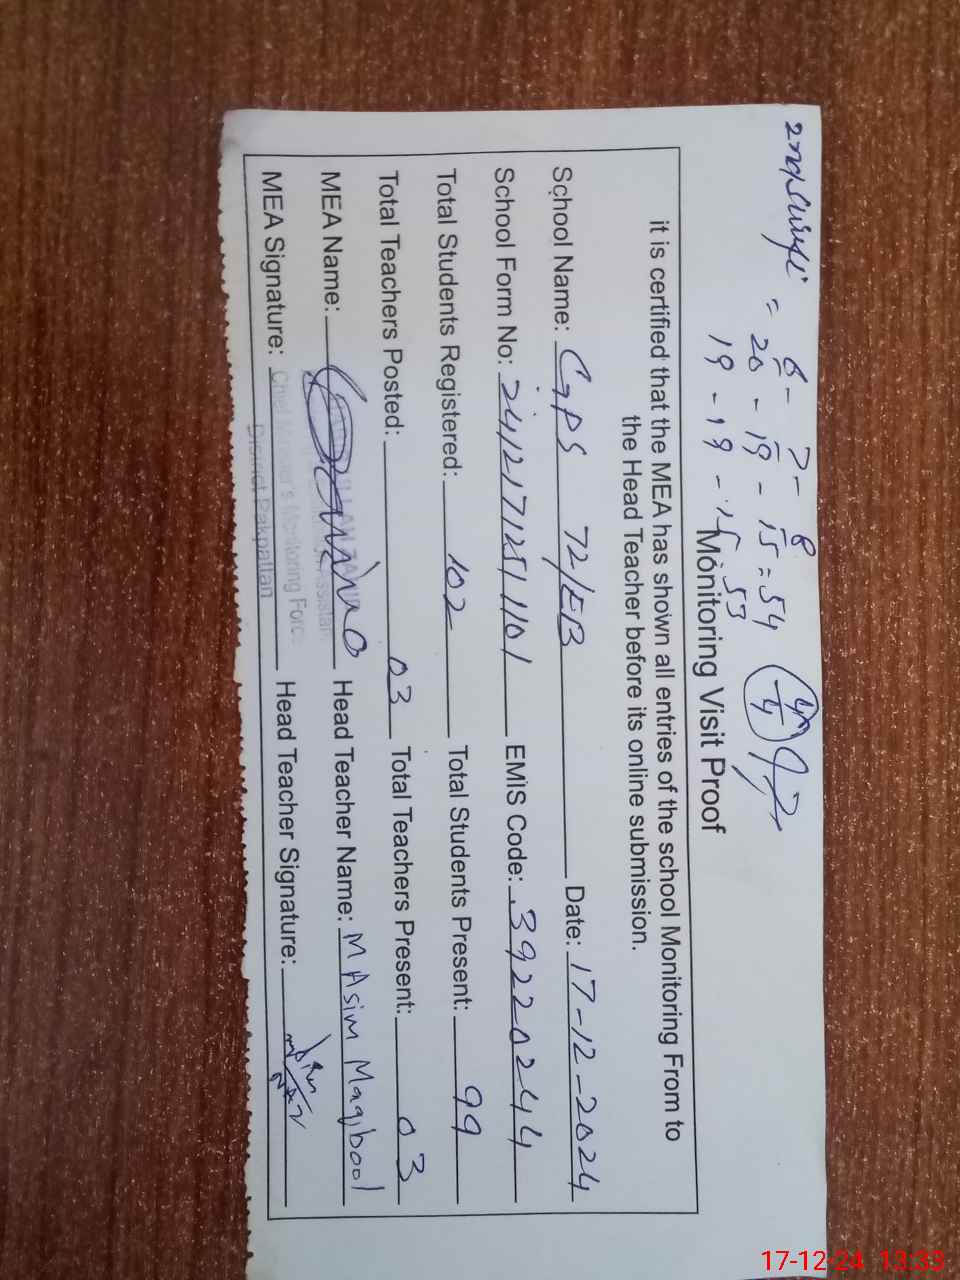 = 8 - 7 - 8
20 - 19 - 15 = 54
19 - 19 - 15 53
Monitoring Visit Proof
it is certified that the MEA has shown all entries of the school Monitoring From to
the Head Teacher before its online submission.
School Name: GPS 72/EB Date: 17-12-2024
School Form No: 2412171251101 EMIS Code: 39220244
Total Students Registered: 102 Total Students Present: 99
Total Teachers Posted: 03 Total Teachers Present: 03
MEA Name: Head Teacher Name: M Asim Maqbool
MEA Signature: Head Teacher Signature:
Chief Minister's Monitoring Force
District Pakpattan
17-12-24 13:33